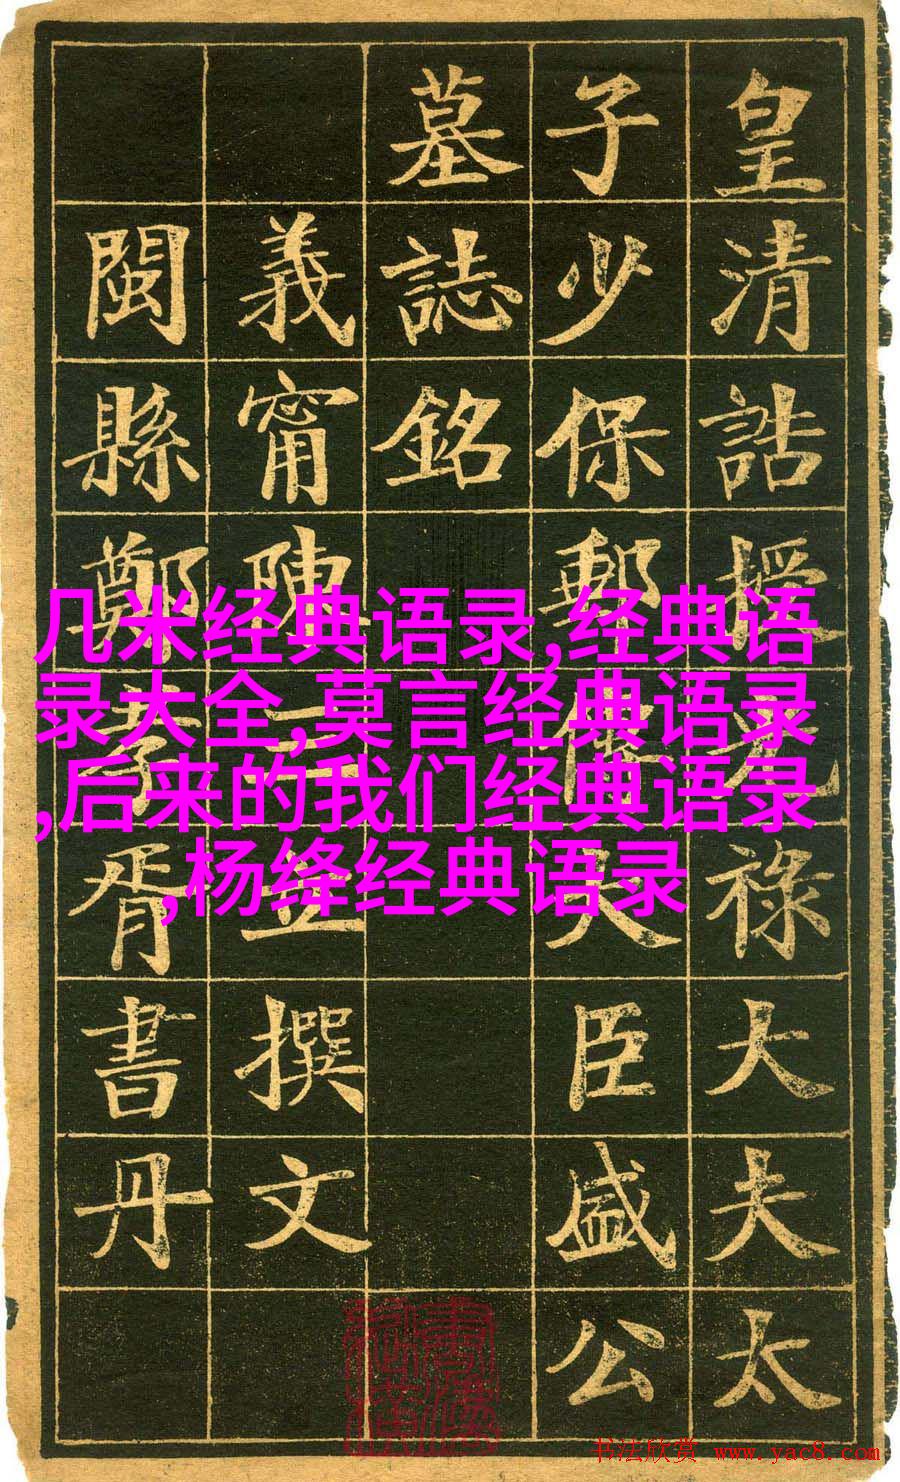 皇清誥授光祿大夫太
子少保郵傳大臣盛公
墓誌銘
義甯陳三立撰文
閩縣鄭孝胥書丹
几米经典语录,经典语
录大全,莫言经典语录
,后来的我们经典语录
,杨绛经典语录
书法欣赏 www.yac8.com